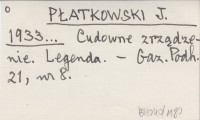 PŁATKOWSKI J.
1933... Cudowne zrządze-
nie. Legenda. – Gaz. Podh.
21, nr 8.